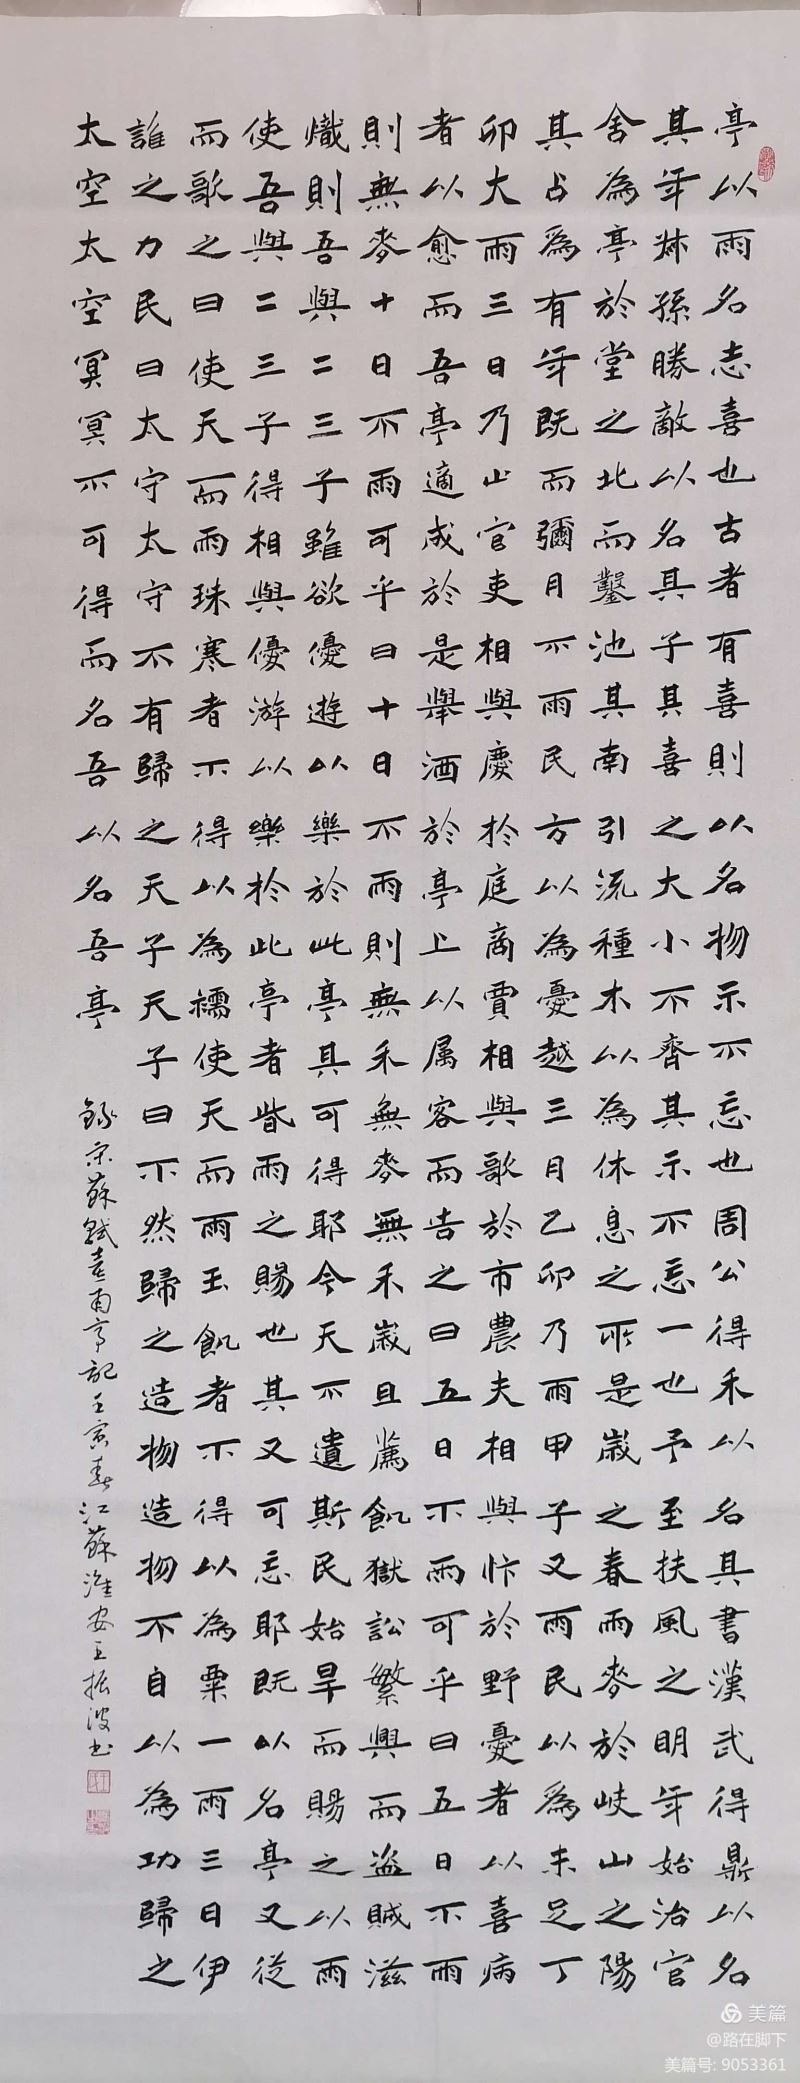 亭以雨名志喜也古者有喜則以名物示不忘也周公得禾以名其書漢武得鼎以名
其年叔孫勝敵以名其子其喜之大小不齊其示不忘一也予至扶風之明年始治官
舍為亭於堂之北而鑿池其南引流種木以為休息之所是歲之春雨麥於岐山之陽
其占為有年既而彌月不雨民方以為憂越三月乙卯乃雨甲子又雨民以為未足丁
卯大雨三日乃止官吏相與慶於庭商賈相與歌於市農夫相與忭於野憂者以喜病
者以愈而吾亭適成於是舉酒於亭上以属客而告之曰五日不雨可乎曰五日不雨
則無麥十日不雨可乎曰十日不雨則無禾無麥無禾歲且薦飢獄訟繁興而盜賊滋
熾則吾與二三子雖欲優遊以樂於此亭其可得耶今天不遺斯民始旱而賜之以雨
使吾與二三子得相與優游以樂於此亭者皆雨之賜也其又可忘耶既以名亭又從
而歌之曰使天而雨珠寒者不得以為襦使天而雨玉飢者不得以為粟一雨三日伊
誰之力民曰太守太守不有歸之天子天子曰不然歸之造物造物不自以為功歸之
太空太空冥冥不可得而名吾以名吾亭
錄宋蘇軾喜雨亭記壬寅春江蘇淮安王振波书
美篇
@路在脚下
美篇号: 9053361